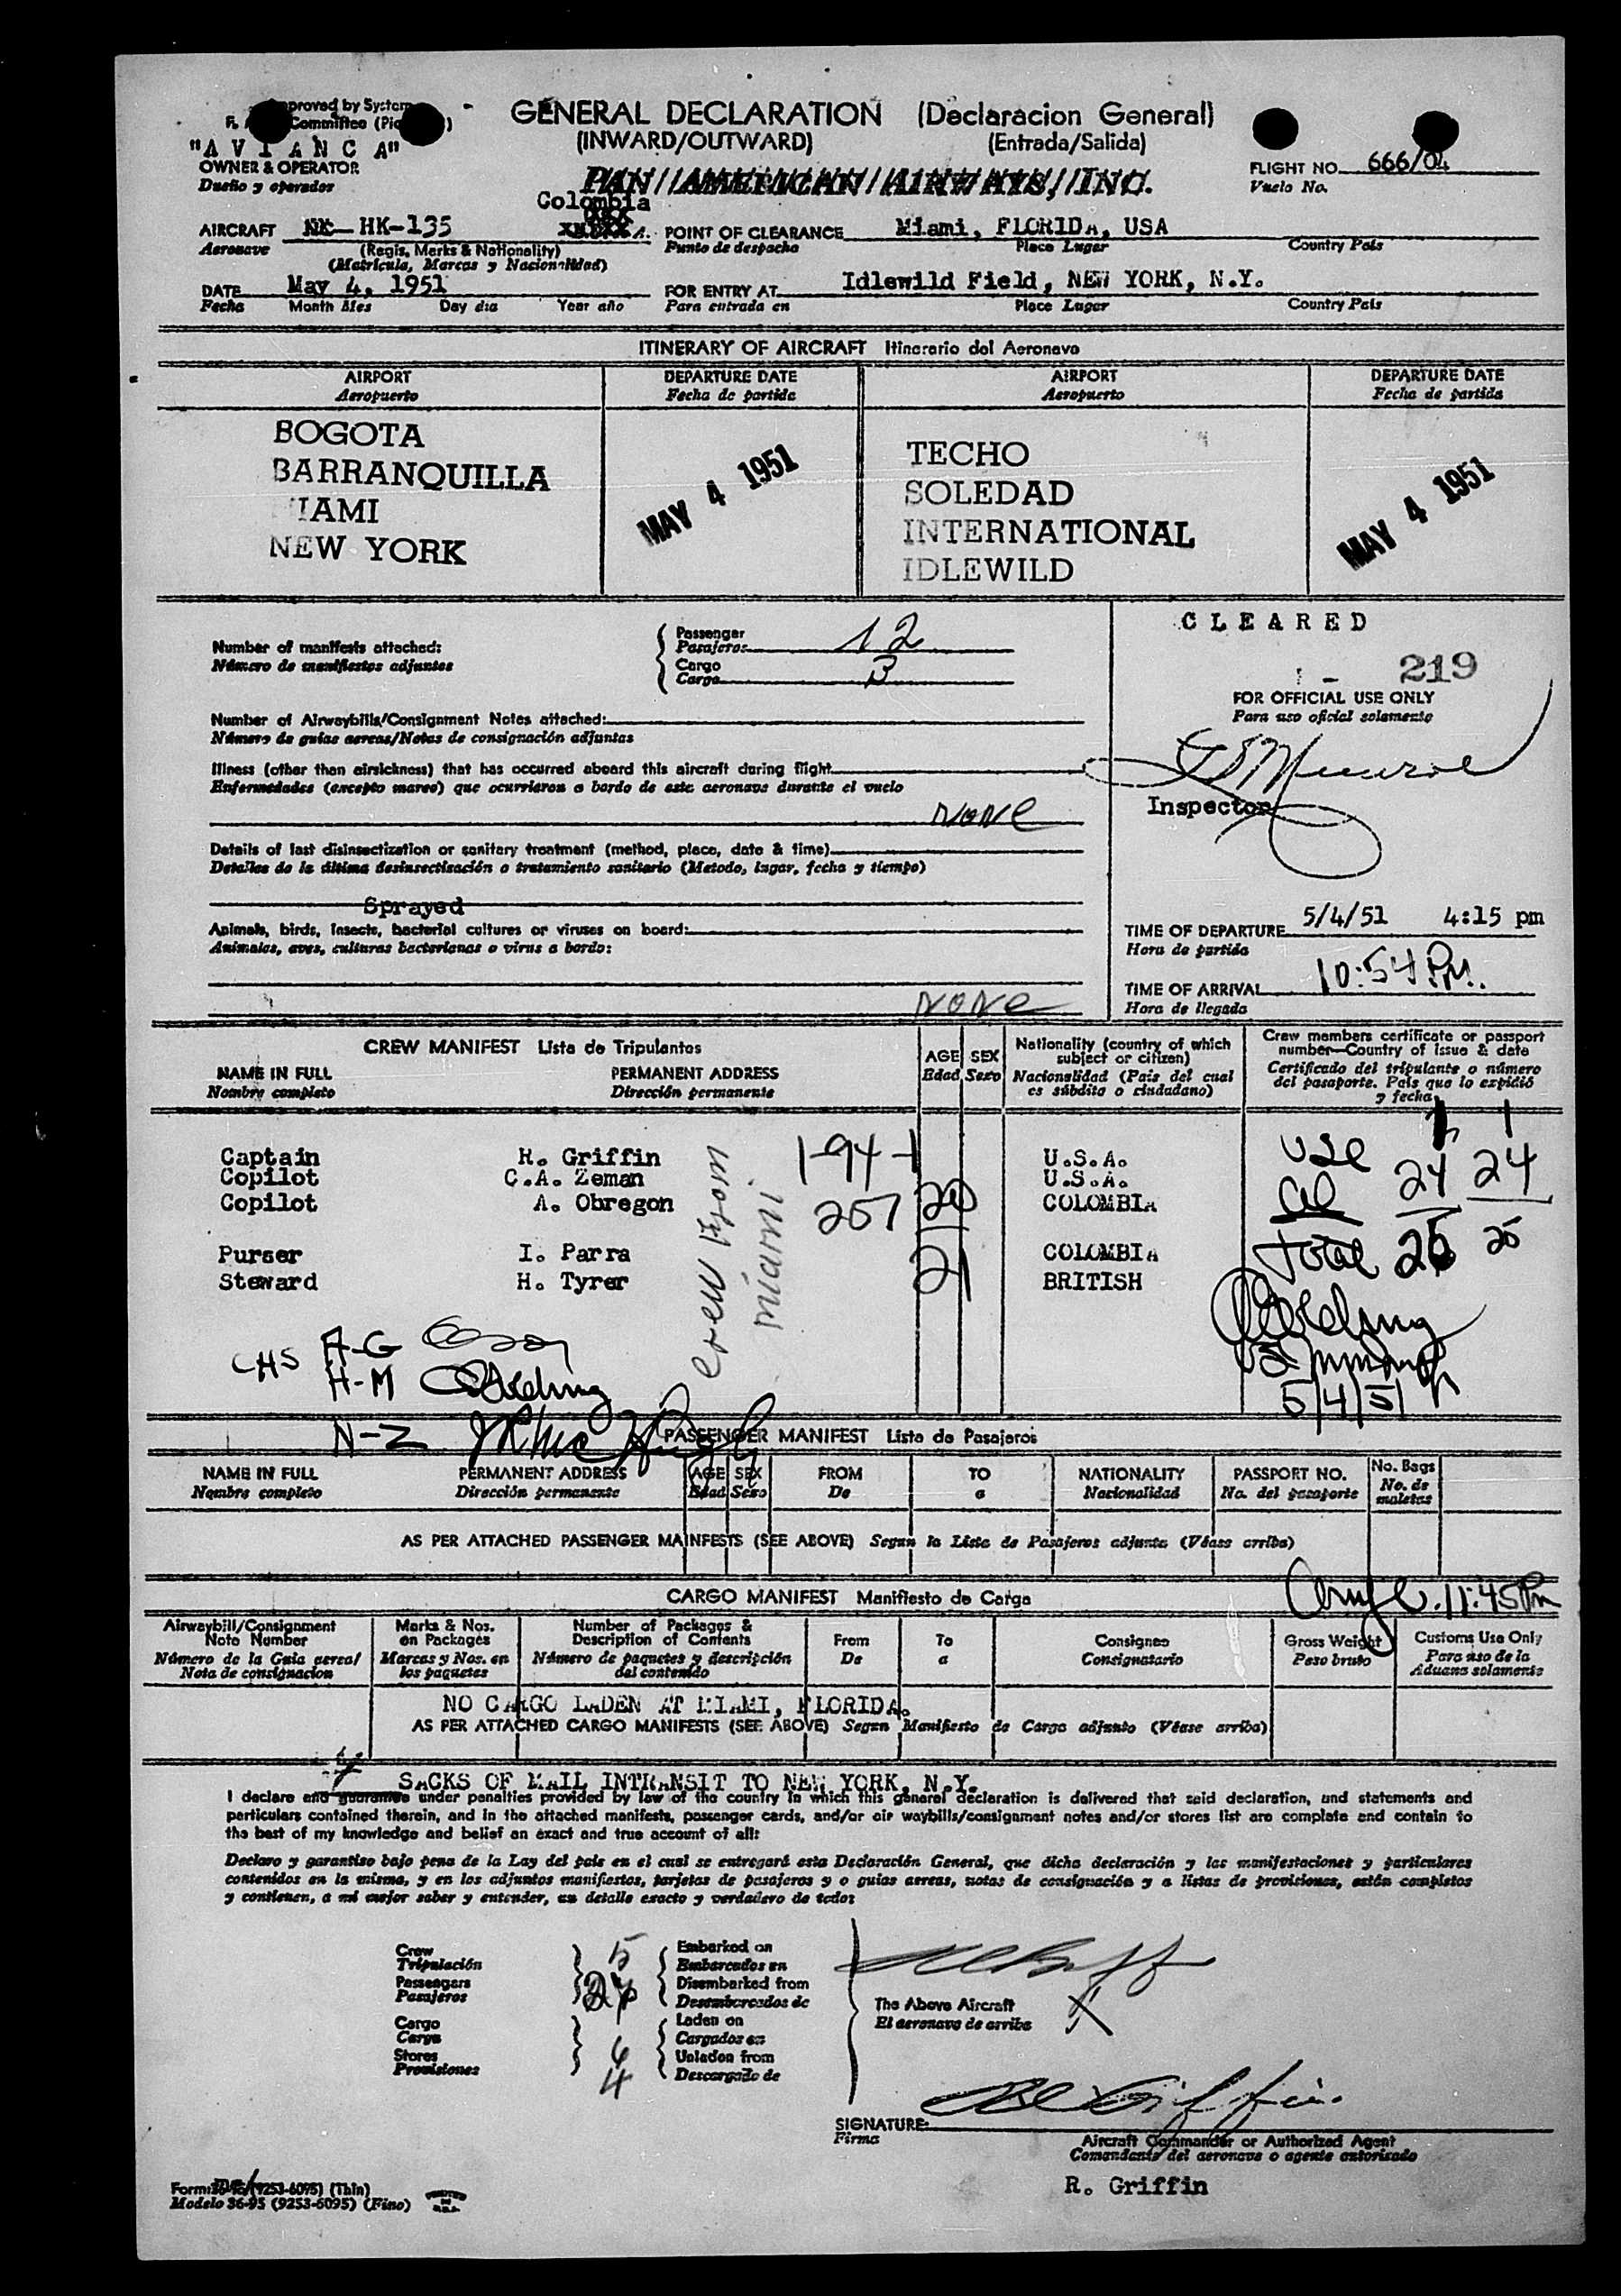 proved by System
Committee (Pic
GENERAL DECLARATION (Declaracion General)
(INWARD/OUTWARD) (Entrada/Salida)
"A V I A N C A"
OWNER & OPERATOR
Dueño y operador
PAN AMERICAN AIRWAYS, INC.
FLIGHT NO. 666/04
Vuelo No.
Colombia
AIRCRAFT NC- HK-135
Aeronave (Regis. Marks & Nationality)
(Matricula, Marcas y Nacionalidad)
POINT OF CLEARANCE Miami, FLORIDA, USA
Punto de despacho Place Lugar Country Pais
DATE May 4, 1951
Fecha Month Mes Day dia Year año
FOR ENTRY AT Idlewild Field, NEW YORK, N.Y.
Para entrada en Place Lugar Country Pais
ITINERARY OF AIRCRAFT Itinerario del Aeronave
AIRPORT DEPARTURE DATE AIRPORT DEPARTURE DATE
Aeropuerto Fecha de partida Aeropuerto Fecha de partida
BOGOTA TECHO
BARRANQUILLA SOLEDAD
MIAMI INTERNATIONAL
NEW YORK IDLEWILD
MAY 4 1951 MAY 4 1951
Number of manifests attached:
Número de manifiestos adjuntos
Passenger
Pasajeros 12
Cargo
Carga 3
CLEARED
219
FOR OFFICIAL USE ONLY
Para uso oficial solamente
Number of Airwaybills/Consignment Notes attached:
Número de guias aereas/Notas de consignación adjuntas
Illness (other than airsickness) that has occurred aboard this aircraft during flight
Enfermedades (excepto mareo) que ocurrieron a bordo de este aeronave durante el vuelo
None
Inspector
Details of last disinsectization or sanitary treatment (method, place, date & time)
Detalles de la última desinsectización o tratamiento sanitario (Metodo, lugar, fecha y tiempo)
Sprayed
Animals, birds, insects, bacterial cultures or viruses on board:
Animales, aves, culturas bacterianas o virus a bordo:
None
TIME OF DEPARTURE 5/4/51 4:15 pm
Hora de partida
TIME OF ARRIVAL 10:54 P.M.
Hora de llegada
CREW MANIFEST Lista de Tripulantes
NAME IN FULL PERMANENT ADDRESS
Nombre completo Dirección permanente
AGE SEX
Edad Sexo
Nationality (country of which
subject or citizen)
Nacionalidad (Pais del cual
es súbdito o ciudadano)
Crew members certificate or passport
number—Country of issue & date
Certificado del tripulante o número
del pasaporte. Pais que lo expidió
y fecha
Captain R. Griffin U.S.A.
Copilot C.A. Zeman U.S.A.
Copilot A. Obregon COLOMBIA
Purser I. Parra COLOMBIA
Steward H. Tyrer BRITISH
Crew From
Miami
1-94-1
257 20
21
USC 24 24
al 1 1
Total 25 25
CHS A-G
H-M
N-Z
5/4/51
PASSENGER MANIFEST Lista de Pasajeros
NAME IN FULL PERMANENT ADDRESS AGE SEX FROM TO NATIONALITY PASSPORT NO. No. Bags
Nombre completo Dirección permanente Edad Sexo De a Nacionalidad No. del pasaporte No. de maletas
AS PER ATTACHED PASSENGER MAINFESTS (SEE ABOVE) Segun la Lista de Pasajeros adjunta (Véase arriba)
11:45 Pm
CARGO MANIFEST Manifiesto de Carga
Airwaybill/Consignment
Note Number
Número de la Guia aerea/
Nota de consignacion
Marks & Nos.
on Packages
Marcas y Nos. en
los paquetes
Number of Packages &
Description of Contents
Número de paquetes y descripción
del contenido
From
De
To
a
Consignee
Consignatario
Gross Weight
Peso bruto
Customs Use Only
Para uso de la
Aduana solamente
NO CARGO LADEN AT MIAMI, FLORIDA.
AS PER ATTACHED CARGO MANIFESTS (SEE ABOVE) Segun Manifiesto de Carga adjunto (Véase arriba)
SACKS OF MAIL INTRANSIT TO NEW YORK, N.Y.
I declare and guarantee under penalties provided by law of the country in which this general declaration is delivered that said declaration, und statements and
particulars contained therein, and in the attached manifests, passenger cards, and/or air waybills/consignment notes and/or stores list are complete and contain to
the best of my knowledge and belief an exact and true account of all:
Declaro y garantiso bajo pena de la Ley del pais en el cual se entregará esta Declaración General, que dicha declaración y las manifestaciones y particulares
contenidos en la misma, y en los adjuntos manifiestos, tarjetas de pasajeros y o guias aereas, notas de consignación y a listas de provisiones, están completos
y contienen, a mi mejor saber y entender, un detalle exacto y verdadero de todo:
Crew
Tripulación 5
Passengers
Pasajeros
Cargo
Carga
Stores
Provisiones
Embarked on
Embarcados en
Disembarked from
Desembarcados de
Laden on
Cargados en
Unladen from
Descargado de
The Above Aircraft
El aeronave de arriba
SIGNATURE:
Firma
Aircraft Commander or Authorized Agent
Comandante del aeronave o agente autorizado
R. Griffin
(9253-6095) (Thin)
Modelo 36-95 (9253-6095) (Fino)